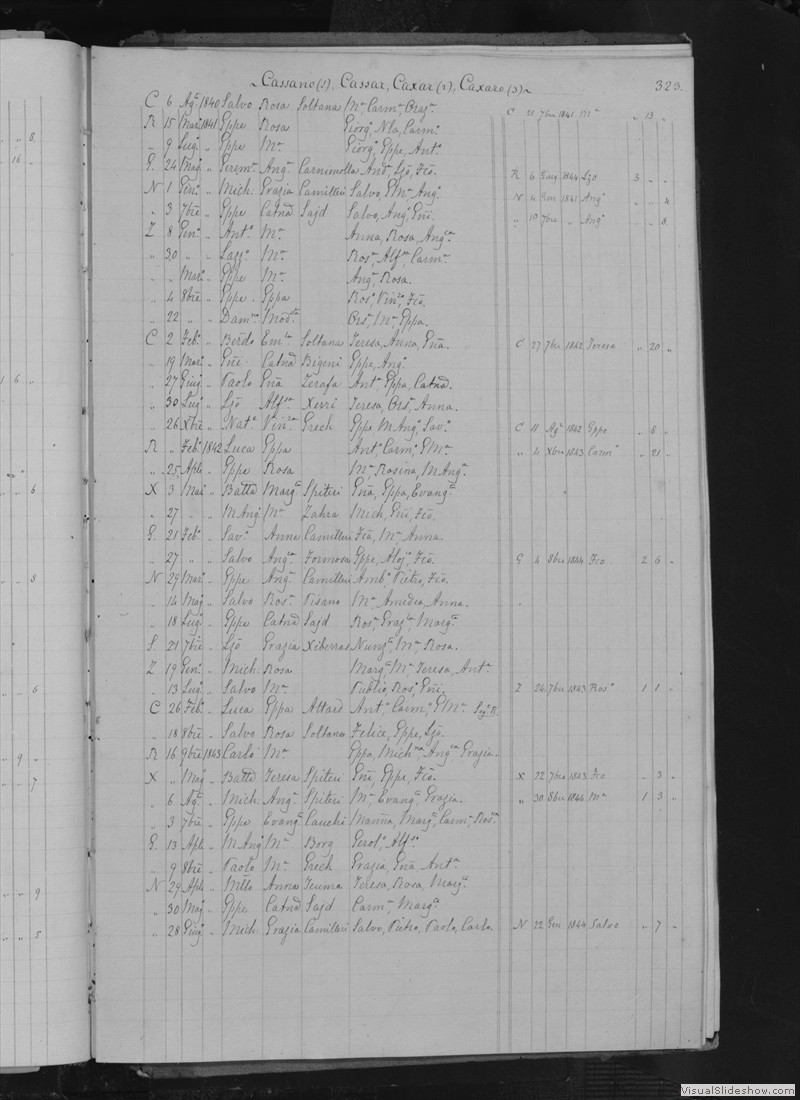 Cassano (1), Cassar, Caxar (2), Caxaro (3) 323.
C 6 Agº 1840 Salvo Rosa Soltana Mª Carmª, Orazª. C 21 7bre 1841 Mª „ 13 „
R 15 Marº 1841 Eppe Rosa Giorgº, Nla, Carmº.
„ 9 Lugº „ Eppe Mª Giorgº, Eppe, Antº.
G. 24 Magº „ Geremª Angª Andª, Ljō, Fcō. R 6 1844 Ljo 3 „ „
N 1 Genº „ Mich. Grazia Camilleri Salvo, PMª, Angª. N 4 Gen 1841 Angª „ „ 4
„ 3 7bre „ Eppe Catnā Sajd Salvo, Angº, Enē. „ 19 7bre „ Angº „ „ 8
Z 8 Genº „ Antº Mª Anna, Rosa, Angca.
„ 30 „ „ Lazzº Mª Rosª, Alfsa, Carmª.
„ „ Marº „ Eppe Mª Angª, Rosa.
„ 4 8bre „ Eppe. Eppa Rosª, Vinza, Fcō.
„ 22 „ „ Modta Orsª, Mª, Eppa.
C 2 Febº „ Berdo Emla Soltana Teresa, Anna, Enā. C 27 7bre 1842 Teresa „ 20 „
„ 19 Marº „ Enē. Catnā Bigeni Eppe, Angº.
„ 27 Giugº „ Paolo Enā Zerafa Antª, Eppa, Catnā.
„ 30 Lugº „ Ljō Alfsa Xerri Teresa, Orsª, Anna.
„ 26 Xbre „ Natº Vinza Grech Eppe, M Angº, Savª. C 11 Agº 1842 Eppe „ 8 „
R „ Febº 1842 Luca Eppa Antº, Carmº, PMª. „ 4 Xbre 1843 Carmº „ 21 „
„ 25 Aple „ Eppe Rosa Mª, Rosina, M Angª.
X 3 Marº „ Batta Margª Spiteri Enā, Eppa, Evangª.
„ 27 „ „ M Angº Mª Zahra Mich, Enē, Fcō.
G. 21 Febº „ Savº Anna Camilleri Fcā, Mª, Anna.
„ 27 „ „ Salvo Angca Formosa Eppe, Aloj, Fcō. G 4 8bre 1844 Fco 2 6 „
N 29 Marº „ Eppe Angª Camilleri Ambº, Pietro, Fcō.
„ 14 Magº „ Salvo Rosª Pisano Mª, Amedea, Anna.
„ 18 Lugº „ Eppe Catnā Sajd Rosª, Grazla, Margª.
S. 21 7bre „ Ljō Grazia Xiberras Nunzª, Mª, Rosa.
Z 19 Genº „ Mich. Rosa Margª, Mª, Teresa, Antª.
„ 13 Lugº „ Salvo Mª Publio, Rosº, Enē. Z 24 7bre 1843 Rosº 1 1 „
C 26 Febº „ Luca Eppa Attard Antº, Carmº, PMª.
„ 18 8bre „ Salvo Rosa Soltana Felice, Eppe, Ljō.
R 16 9bre 1843 Carlo Mª Eppa, Michna, Angca, Grazia.
X „ Magº „ Batta Teresa Spiteri Enē, Eppe, Fcō. X 22 7bre 1843 Fco „ 3 „
„ 6 Agº „ Mich. Angª Spiteri Mª, Evangª, Grazia. „ 30 8bre 1844 Mª 1 3 „
„ 3 7bre „ Eppe Evangª Cauchi Manna, Margª, Carmª, Rosª.
G. 13 Aple „ M Angº Mª Borg Gerolº, Alfso.
„ 9 8bre „ Paolo Mª Grech Grazia, Enā, Antª.
N 29 Aple „ Mtto Anna Teuma Teresa, Rosa, Margª.
„ 30 Magº „ Eppe Catnā Sajd Carmª, Margª.
„ 28 Giugº „ Mich. Grazia Camilleri Salvo, Pietro, Paolo, Carlo. N 22 Gen 1844 Salvo „ 7 „
VisualSlideshow.com